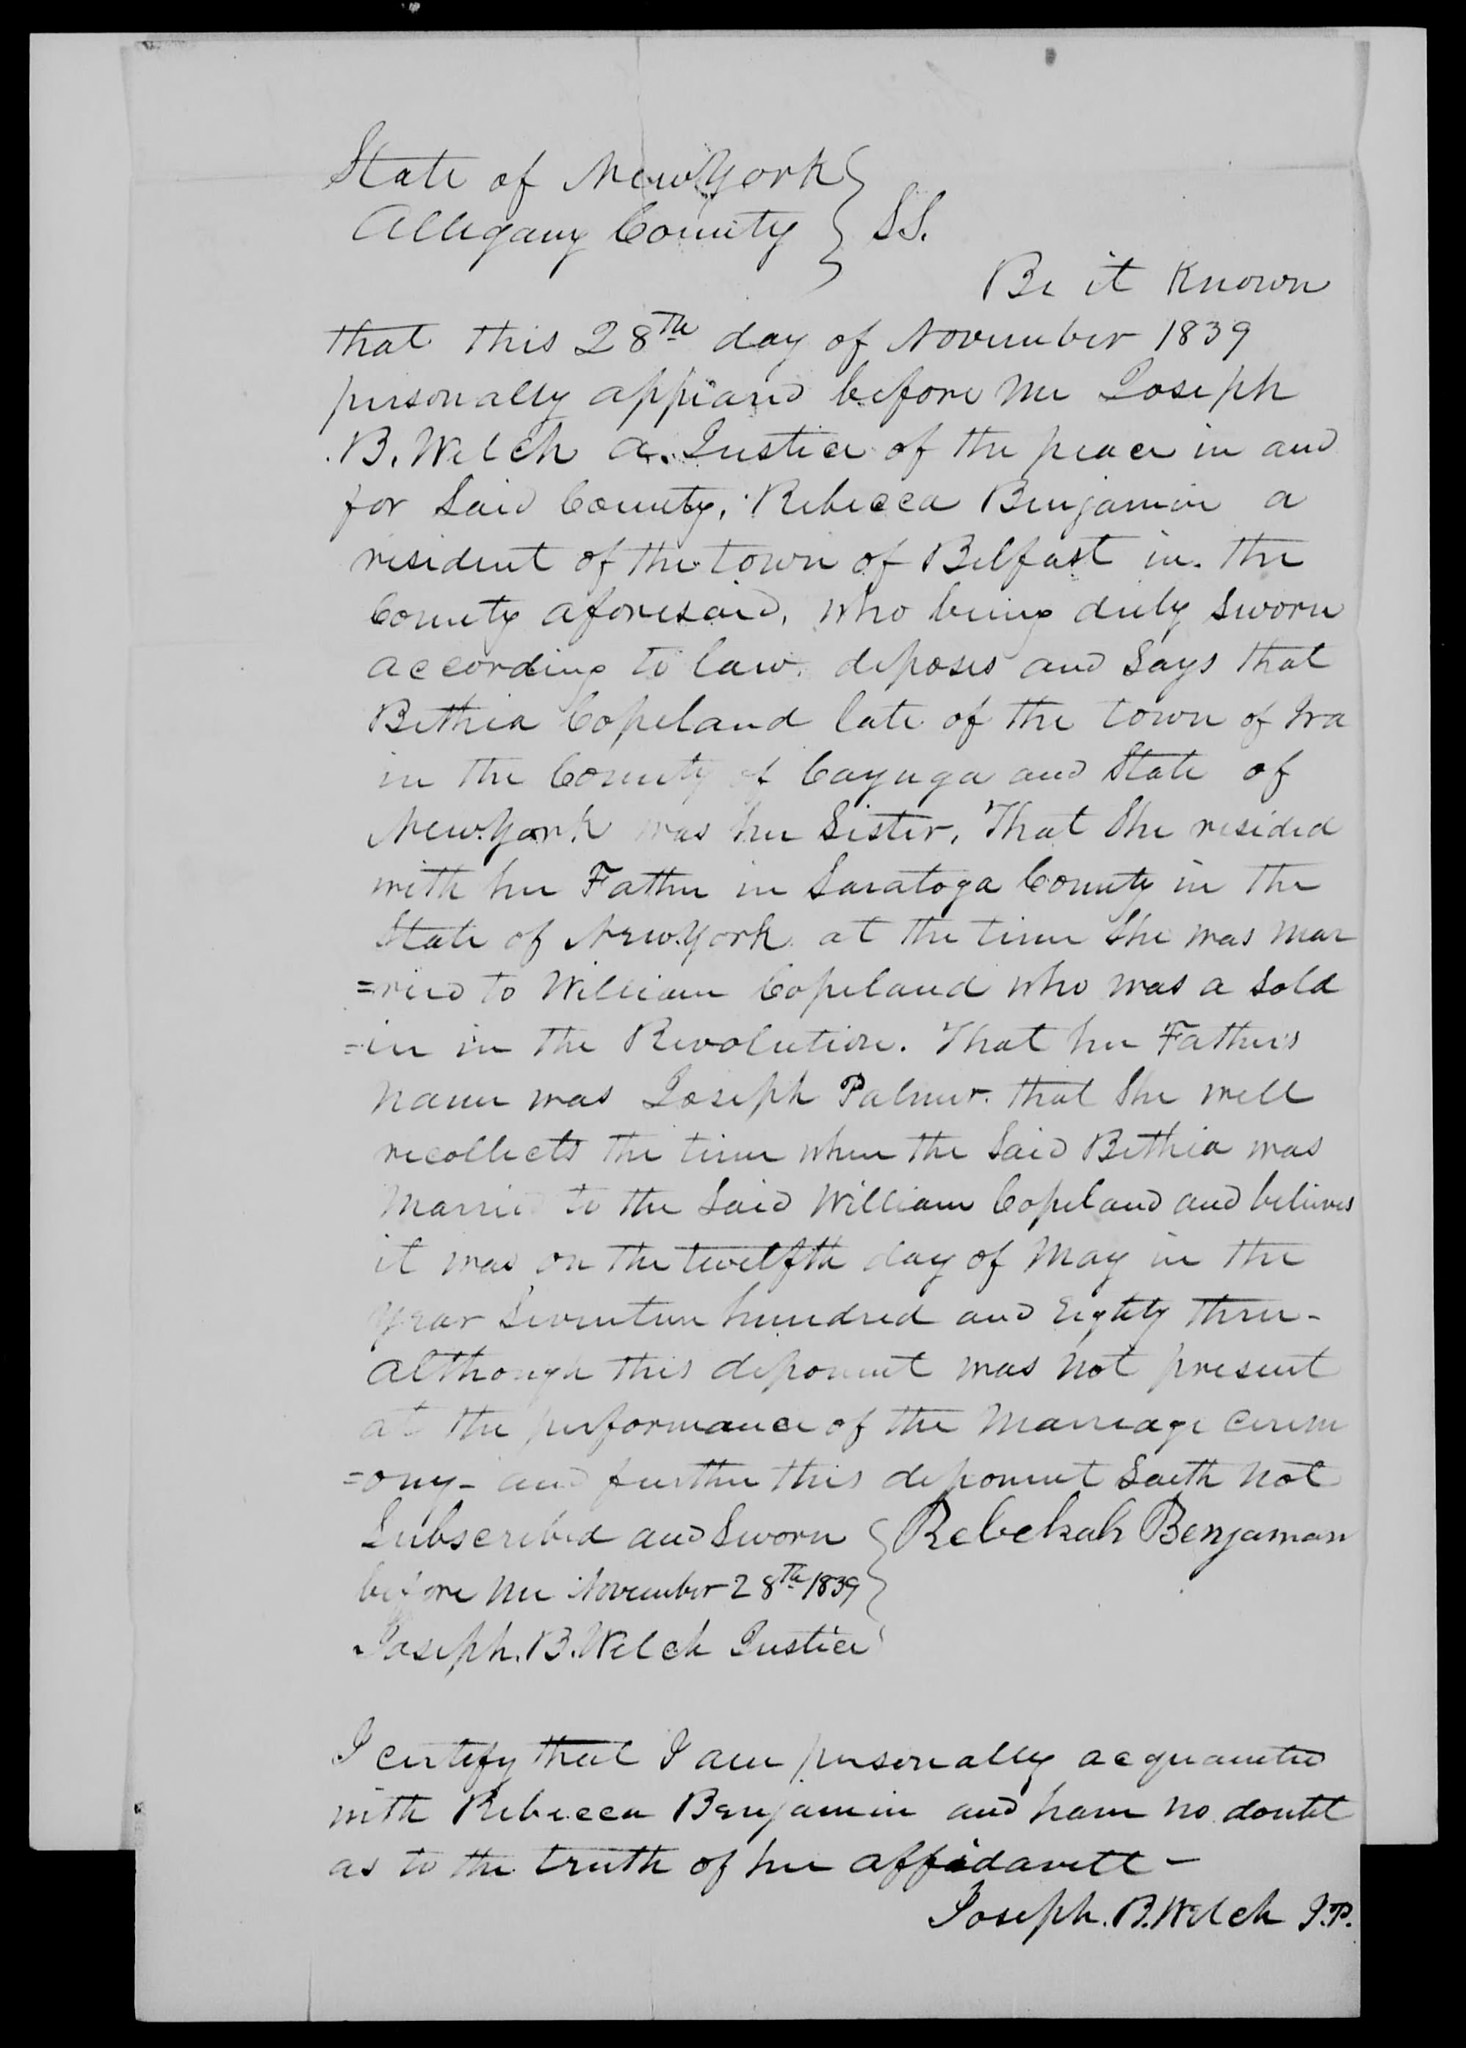 State of New York }
Allegany County } SS.
Be it Known
that this 28th day of November 1839
personally appeard before me Joseph
B. Welch a Justice of the peace in and
for Said County, Rebecca Benjamin a
resident of the town of Belfast in the
County aforesaid, who being duly Sworn
according to law deposes and Says that
Bethia Copeland late of the town of Ira
in the County of Cayuga and State of
New York was her Sister, That She resided
with her Father in Saratoga County in the
State of New York at the time She was mar
=ried to William Copeland who was a Sold
=ier in the Revolution. That her Father's
name was Joseph Palmer. that She well
recollects the time when the Said Bethia was
Married to the Said William Copeland and believes
it was on the twelfth day of May in the
year Seventeen hundred and Eighty three -
although this deponent was not present
at the performance of the Marriage Cerem
=ony - and further this deponent Saith not
Subscribed and Sworn } Rebekah Benjaman
before me November 28th 1839
Joseph. B. Welch Justice
I certify that I am personally acquainted
with Rebecca Benjamin and have no doubt
as to the truth of her affidavitt -
Joseph. B. Welch J.P.